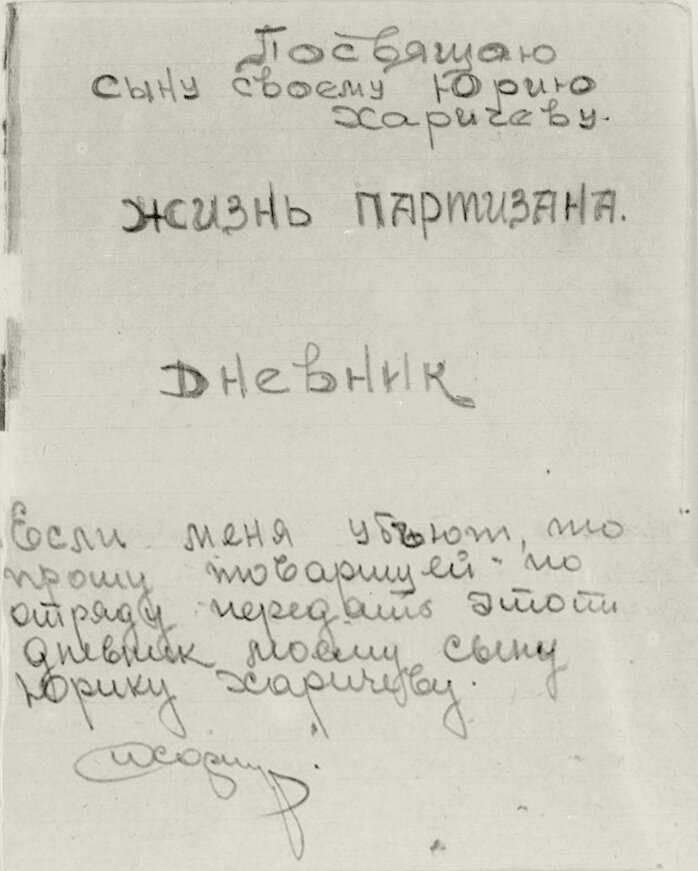 Посвящаю
сыну своему Юрию
Харичеву.
ЖИЗНЬ ПАРТИЗАНА.
Дневник
Если меня убъют, то
прошу товарищей по
отряду передать этот
дневник моему сыну
Юрику Харичеву.